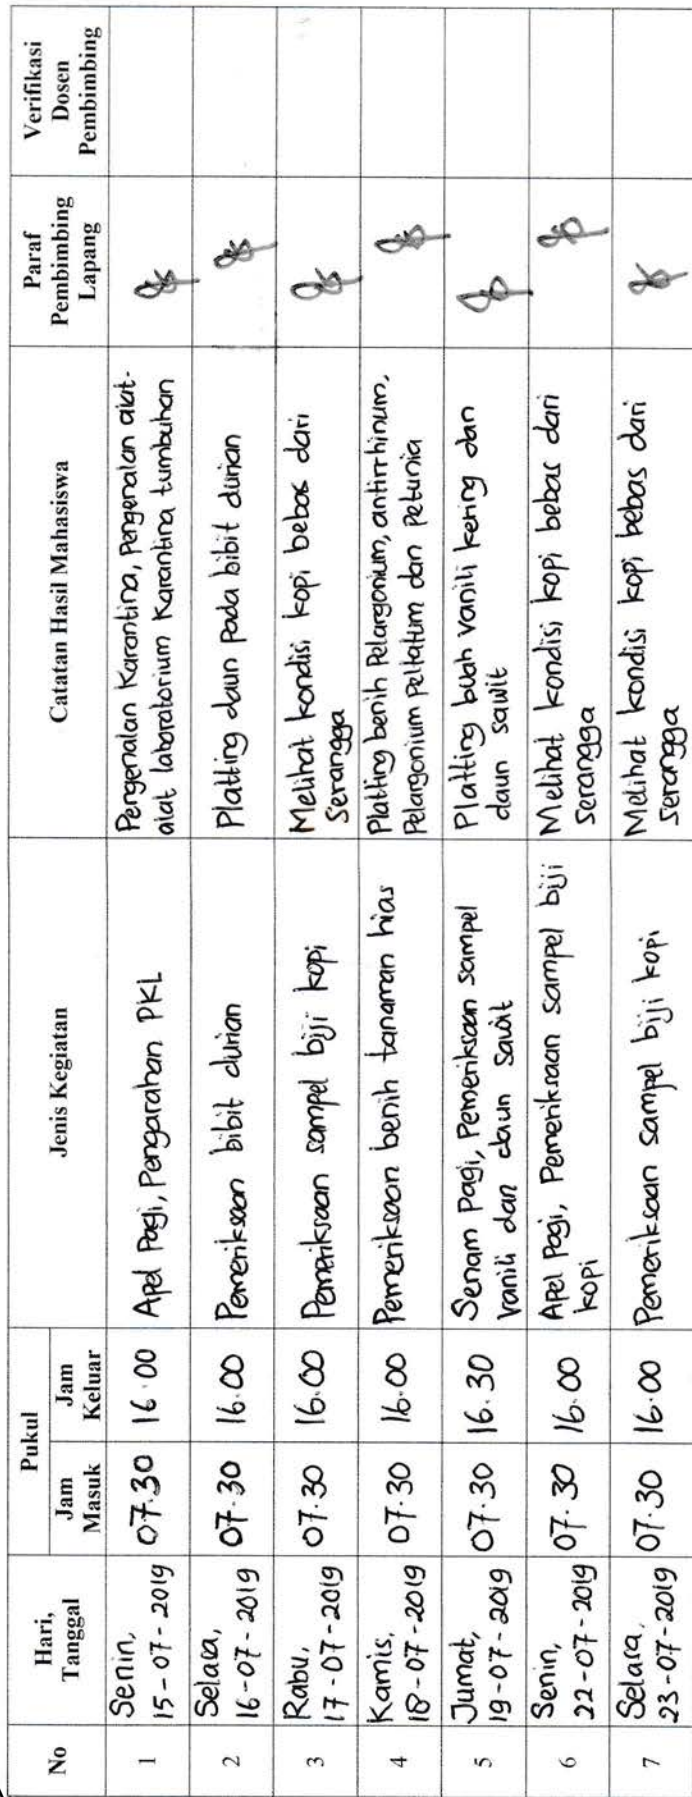 No
Hari,
Tanggal
Pukul
Jam
Masuk
Jam
Keluar
Jenis Kegiatan
Catatan Hasil Mahasiswa
Paraf
Pembimbing
Lapang
Verifikasi
Dosen
Pembimbing
1
Senin,
15-07-2019
07.30
16.00
Apel Pagi, Pengarahan PKL
Pengenalan Karantina, Pengenalan alat-
alat laboratorium Karantina tumbuhan
2
Selasa,
16-07-2019
07.30
16.00
Pemeriksaan bibit durian
Platting daun pada bibit durian
3
Rabu,
17-07-2019
07.30
16.00
Pemeriksaan sampel biji kopi
Melihat kondisi kopi bebas dari
Serangga
4
Kamis,
18-07-2019
07.30
16.00
Pemeriksaan benih tanaman hias
Platting benih Pelargonium, antirrhinum,
Pelargonium peltatum dan petunia
5
Jumat,
19-07-2019
07.30
16.30
Senam Pagi, Pemeriksaan sampel
vanili dan daun sawit
Platting buah vanili kering dan
daun sawit
6
Senin,
22-07-2019
07.30
16.00
Apel Pagi, Pemeriksaan sampel biji
kopi
Melihat kondisi kopi bebas dari
serangga
7
Selasa,
23-07-2019
07.30
16.00
Pemeriksaan sampel biji kopi
Melihat kondisi kopi bebas dari
serangga